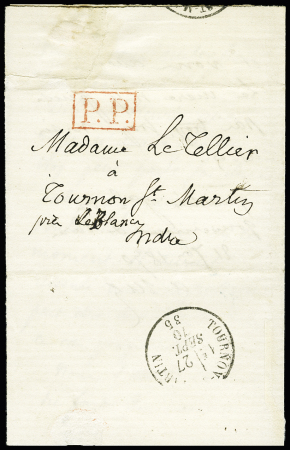 ST-M
P.P.
Madame LeTellier
à
Tournon St. Martin
près Le Blanc
Indre
TOURNON
27
SEPT.
10
35
RTIN